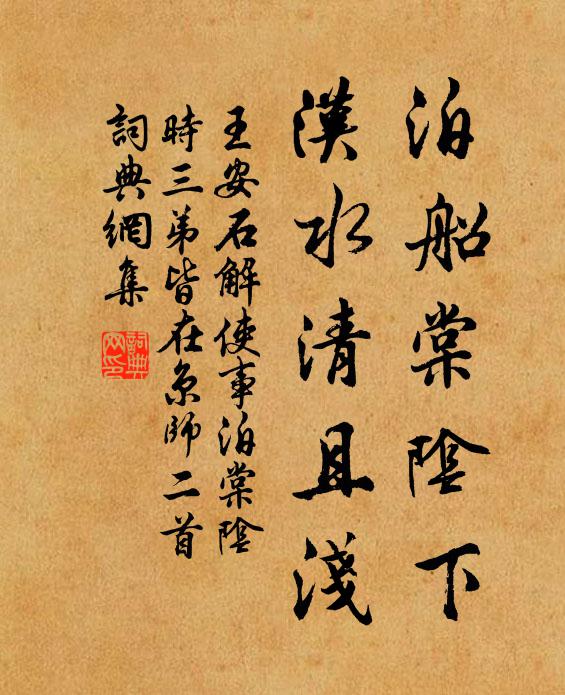 泊船棠陰下
漢水清且淺
王安石解使事泊棠陰
時三弟皆在京師二首
詞典網集
詞典
网印